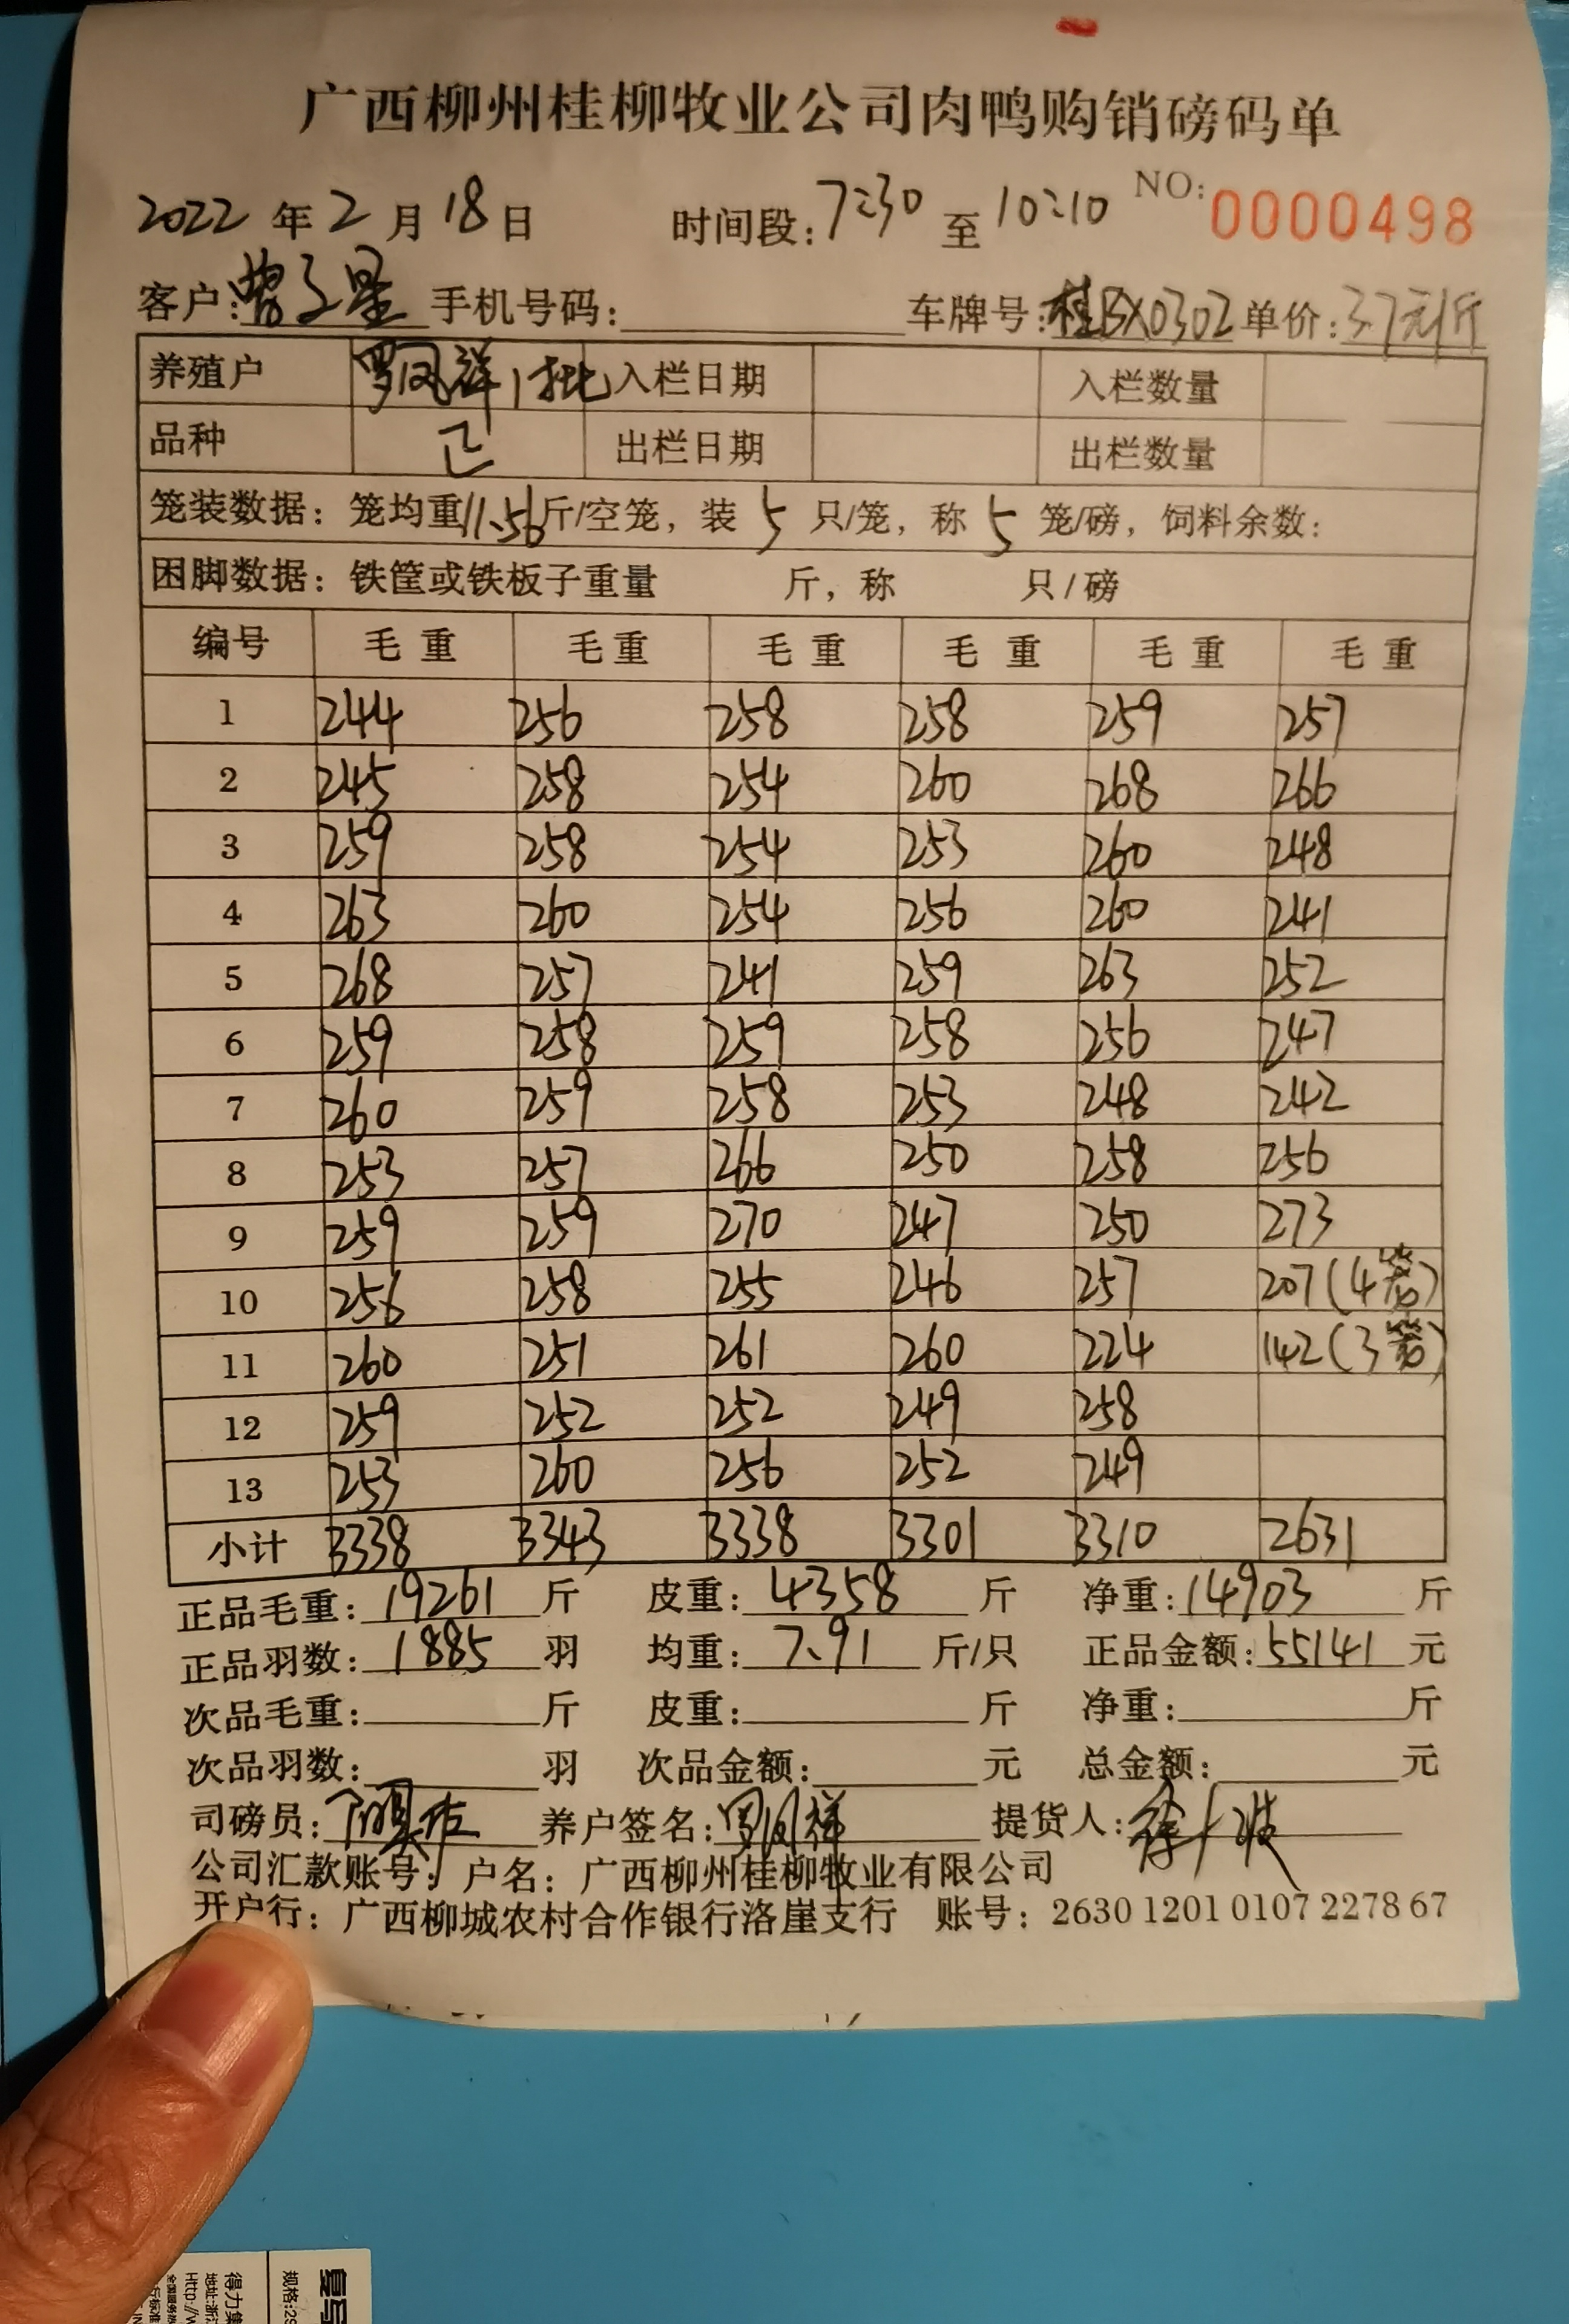 广西柳州桂柳牧业公司肉鸭购销磅码单
2022年2月18日 时间段:7:30至10:10 NO:0000498
客户: 手机号码: 车牌号:桂BX0302 单价:3.7元/斤
养殖户 罗凤祥1批 入栏日期 入栏数量
品种 出栏日期 出栏数量
笼装数据:笼均重11.56斤/空笼,装5只/笼,称5笼/磅,饲料余数:
困脚数据:铁筐或铁板子重量 斤,称 只/磅
编号 毛重 毛重 毛重 毛重 毛重 毛重
1 244 256 258 258 259 257
2 245 258 254 260 268 266
3 259 258 254 253 260 248
4 263 260 254 256 260 241
5 268 257 241 259 263 252
6 259 258 259 258 256 247
7 260 259 258 253 248 242
8 253 257 266 250 258 256
9 259 259 270 247 250 273
10 256 258 255 246 257 207(4笼)
11 260 251 261 260 224 142(3笼)
12 259 252 252 249 258
13 253 260 256 252 249
小计 3338 3343 3338 3301 3310 2631
正品毛重:19261斤 皮重:4358斤 净重:14903斤
正品羽数:1885羽 均重:7.91斤/只 正品金额:55141元
次品毛重: 斤 皮重: 斤 净重: 斤
次品羽数: 羽 次品金额: 元 总金额: 元
司磅员: 养户签名:罗凤祥 提货人:
公司汇款账号:户名:广西柳州桂柳牧业有限公司
开户行:广西柳城农村合作银行洛崖支行 账号:2630 1201 0107 2278 67